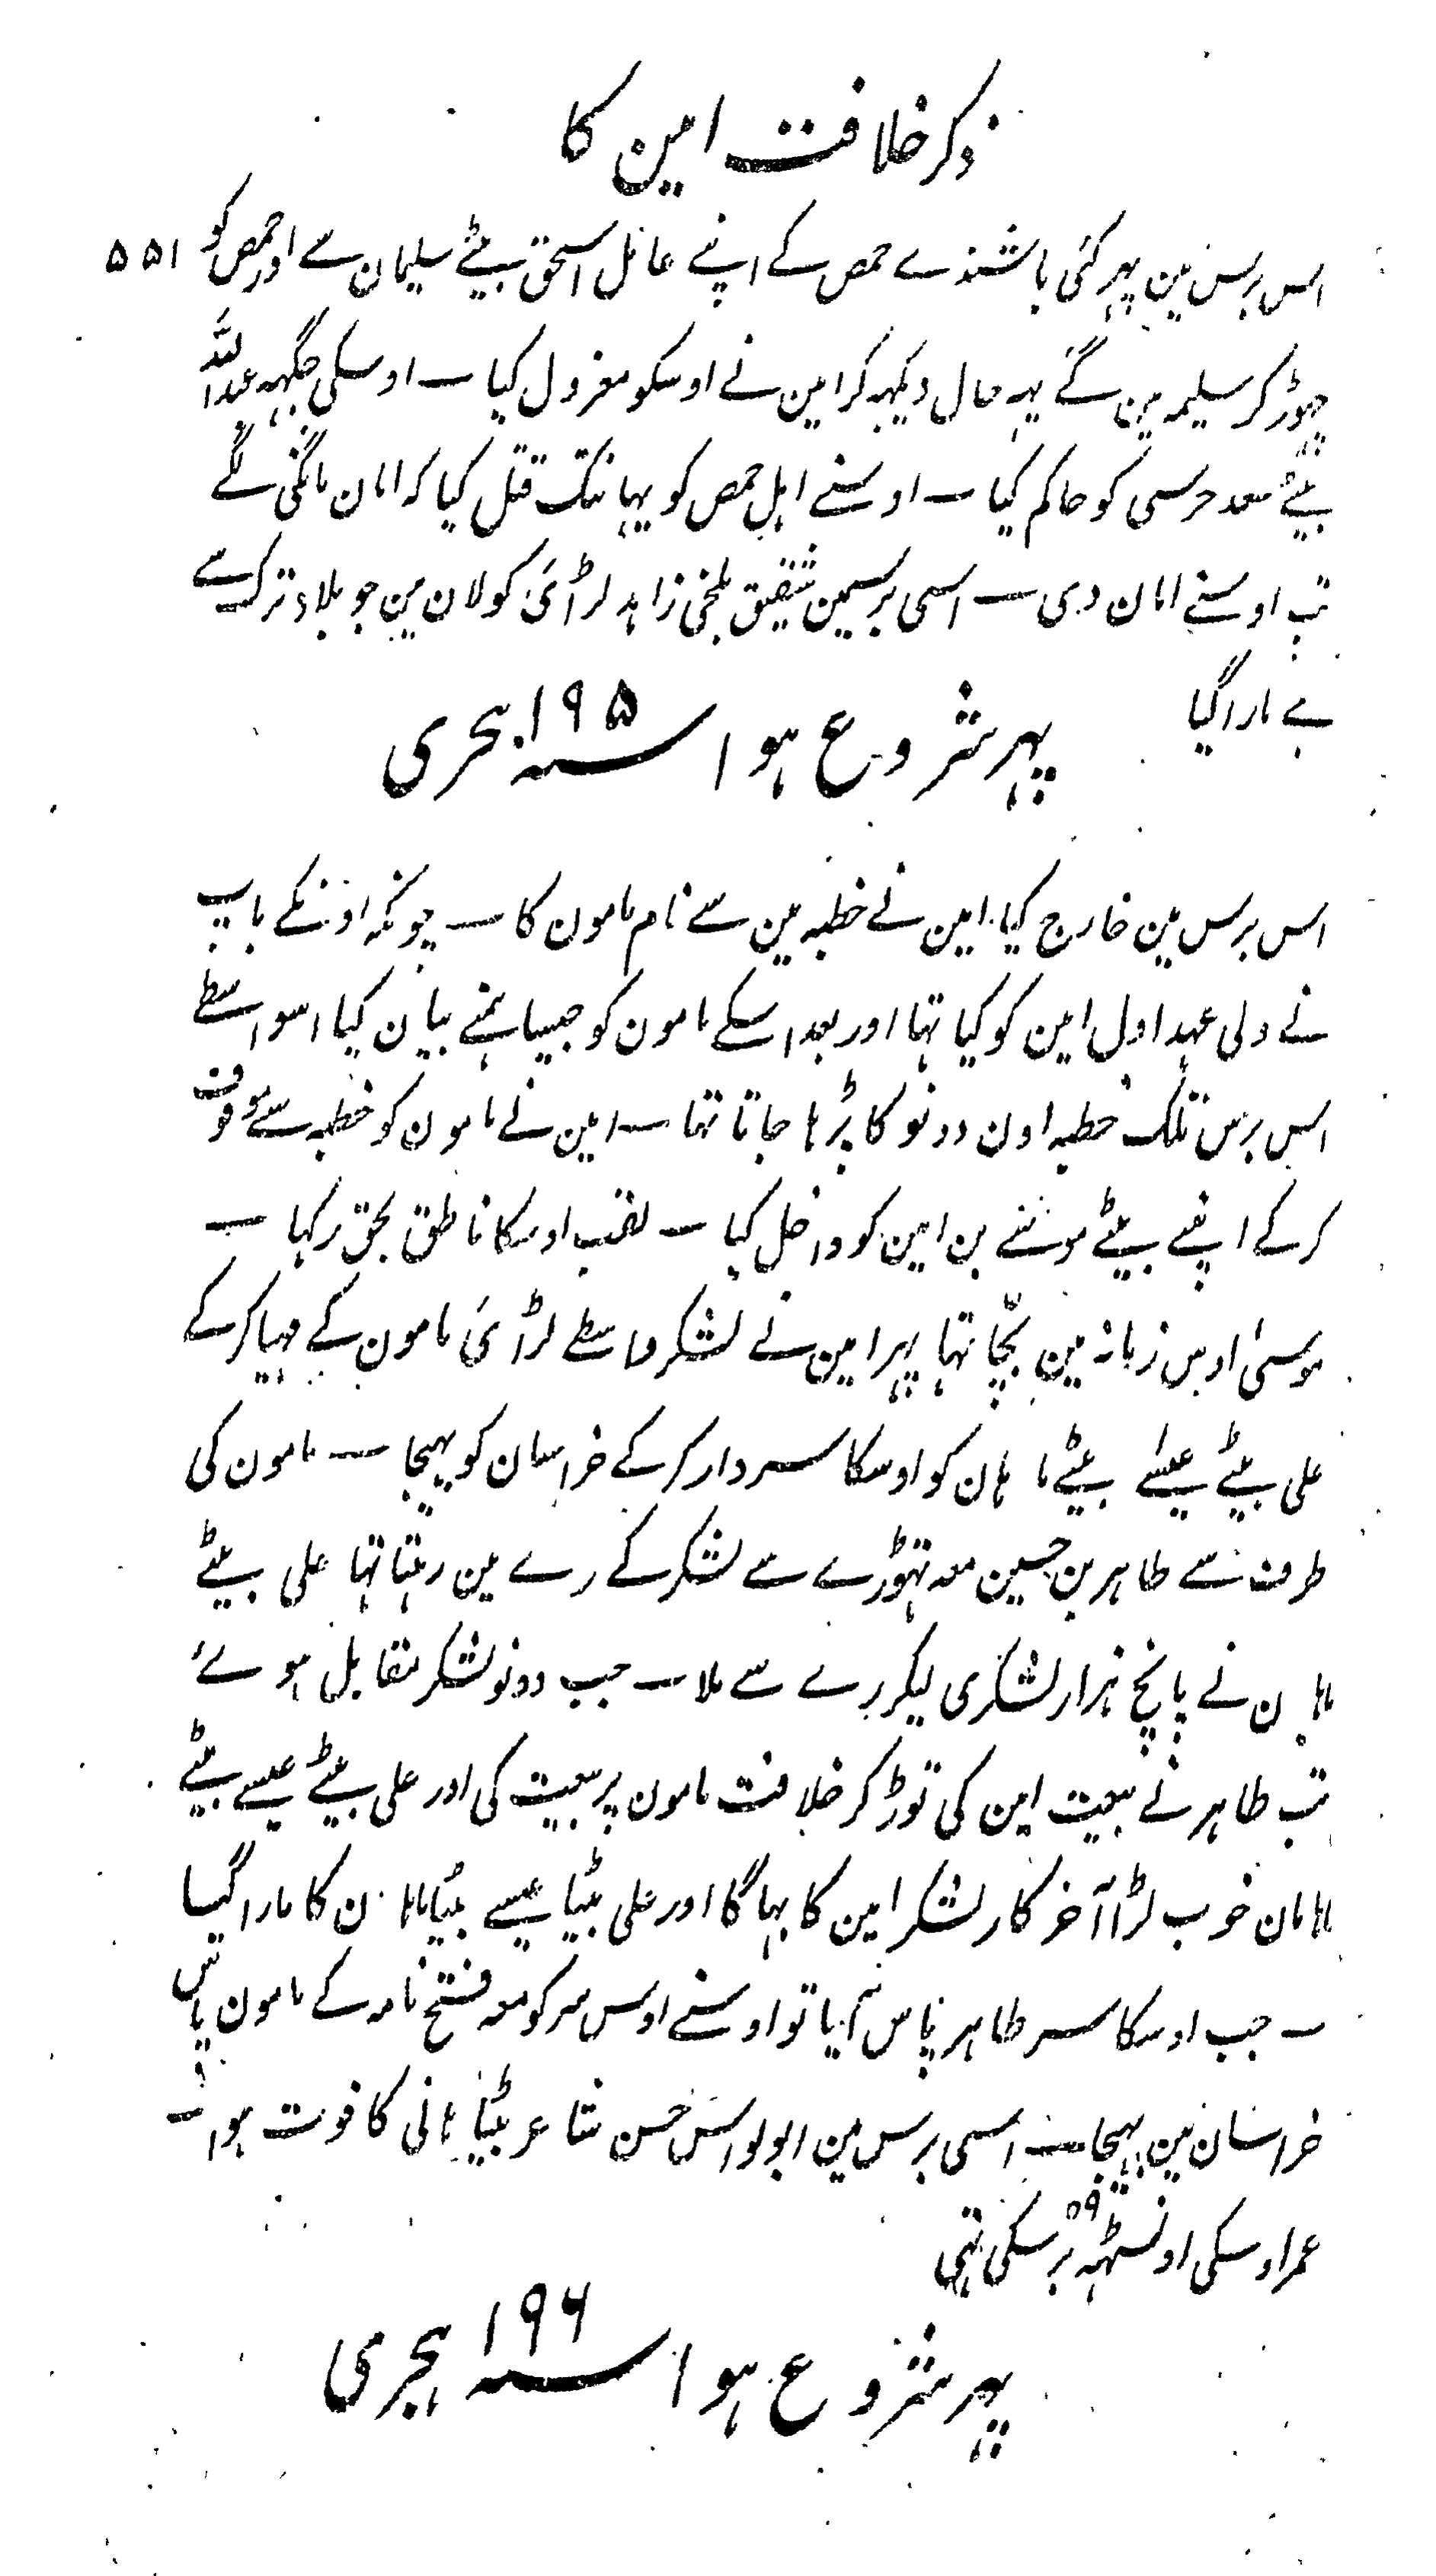 ذکر خلافت امین کا
اس برس مین پہر گئی باشندے حمص کے اپنے عامل اسحق بیٹے سلیمان سے اور حمص کو ۵۵۱
چہوڑ کر سلیمہ مین گئے یہہ حال دیکہہ کر امین نے اوسکو معزول کیا ــ اوسکی جگہہ عبداللہ
بیٹے سعد حرسی کو حاکم کیا ــ اوسنے اہل حمص کو یہانتک قتل کیا کہ امان مانگنی لگے
تب اوسنے امان دی ــ اسی برسمین شقیق بلخی زاہد لڑائی کولان مین جو بلاد ترک سے
ہے مارا گیا
پہر شروع ہوا سنہ ۱۹۵ ہجری
اس برس مین خارج کیا امین نے خطبہ مین سے نام مامون کا ــ چونکہ اونکے باپ
نے ولی عہد اول امین کو کیا تہا اور بعد اسکے مامون کو جیسا ہمنے بیان کیا اسواسطے
اس برس تلک خطبہ اون دونو کا پڑہا جاتا تہا ــ امین نے مامون کو خطبہ سے موقوف
کرکے اپنے بیٹے موسے بن امین کو داخل کیا ــ لقب اوسکا ناطق بحق رکہا ــ
موسیٰ اوس زمانہ مین بچّا تہا پہر امین نے لشکر واسطے لڑائی مامون کے مہیا کرکے
علی بیٹے عیسے بیٹے ماہان کو اوسکا سردار کرکے خراسان کو بہیجا ــ مامون کی
طرف سے طاہر بن حسین معہ تہوڑے سے لشکر کے رے مین رہتا تہا علی بیٹے
ماہان نے پانچ ہزار لشکری لیکر رے سے ملا ــ جب دونو لشکر مقابل ہوئے
تب طاہر نے بیعت امین کی توڑ کر خلافت مامون پر بیعت کی اور علی بیٹے عیسے بیٹے
ماہان خوب لڑا آخر کار لشکر امین کا بہاگا اور علی بیٹا عیسے بیٹا ماہان کا مارا گیا
ــ جب اوسکا سر طاہر پاس آیا تو اوسنے اوس سر کو معہ فتح نامہ کے مامون پاس
خراسان مین بہیجا ــ اسی برس مین ابونواس حسن شاعر بیٹا ہانی کا فوت ہوا ــ
عمر اوسکی اونسٹہہ ۵۹ برسکی تہی
پہر شروع ہوا سنہ ۱۹۶ ہجری